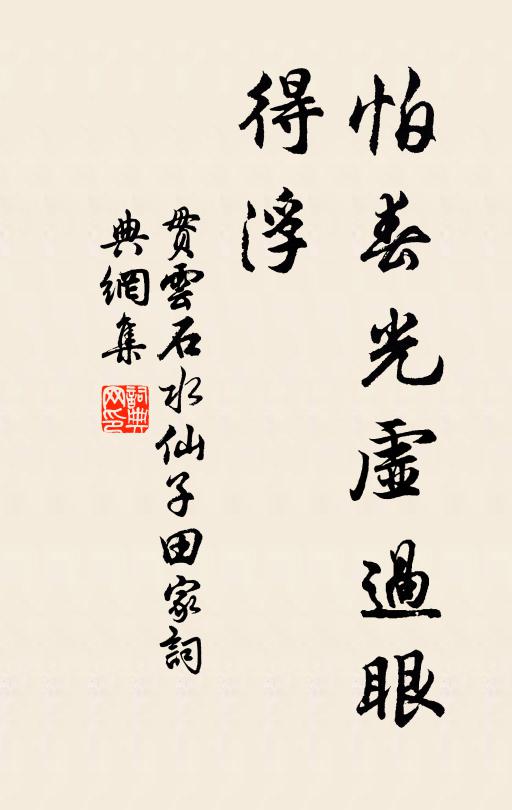 怕春光虛過眼
得浮
貫雲石水仙子田家詞
典網集
詞典
网印